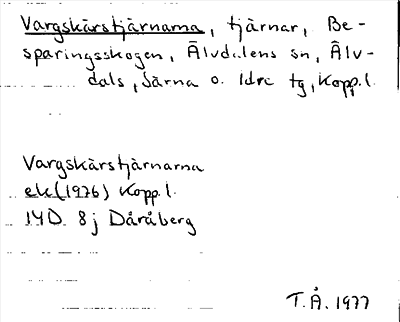 Vargskärstjärnarna, tjärnar, Be-
sparingsskogen, Älvdalens sn, Älv-
dals, Särna o. Idre tg, Kopp. l.
Vargskärstjärnarna
ek (1976) Kopp. l.
14D 8j Dåråberg
T.Å. 1977